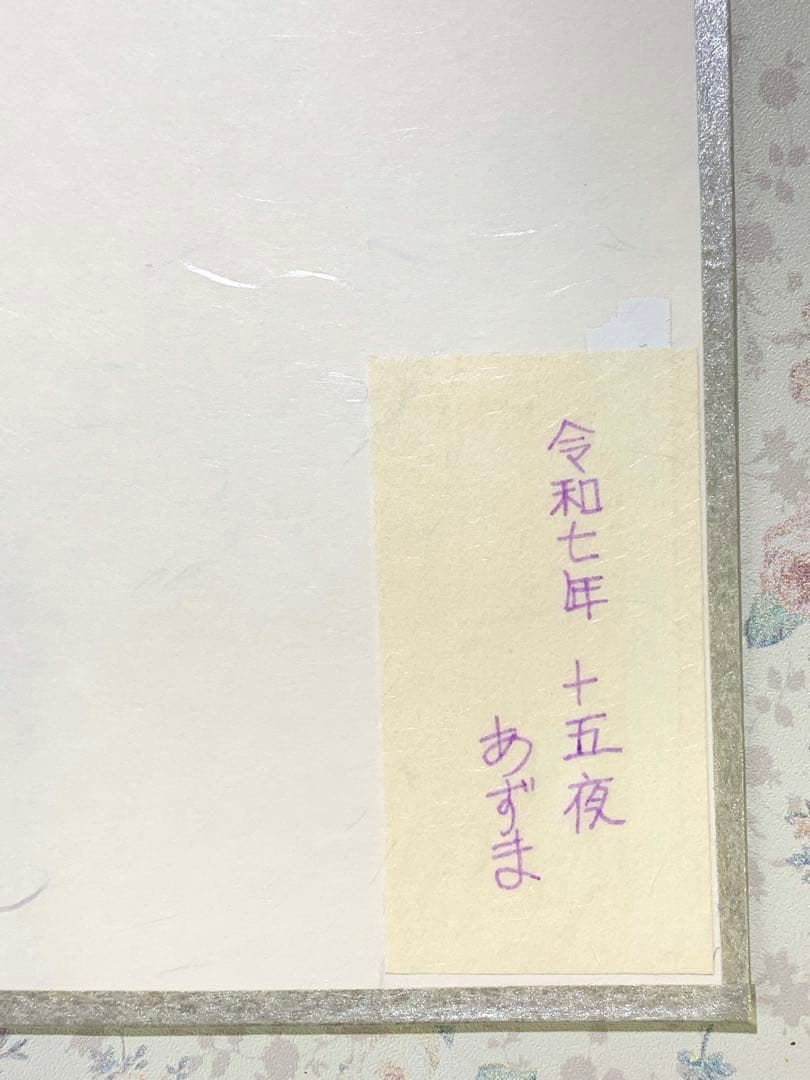 令和七年　十五夜
あずま